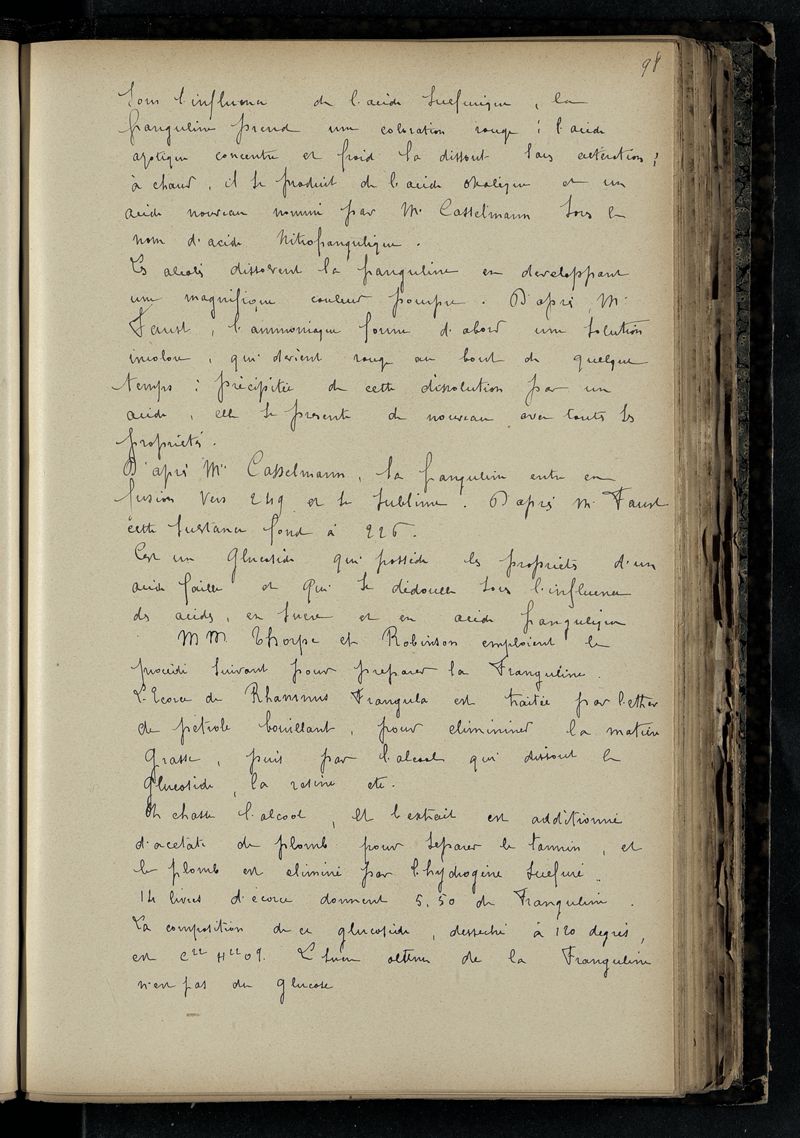 98
Sous l'influence de l'acide sulfurique, la
franguline prend une coloration rouge : l'acide
azotique concentré et froid la dissout sans altération ;
à chaud, il se produit de l'acide oxalique et un
acide nouveau nommé par Mr Casselmann sous le
nom d'acide Nitrofrangulique.
Les alcalis dissolvent la franguline en développant
une magnifique couleur pourpre. D'après Mr
Faust, l'ammoniaque forme d'abord une solution
incolore, qui devient rouge au bout de quelque
temps : précipitée de cette dissolution par un
acide, elle se présente de nouveau avec toutes ses
propriétés.
D'après Mr Casselmann, la franguline entre en
fusion vers 249 et se sublime. D'après Mr Faust
cette substance fond à 226.
C'est un glucoside qui possède les propriétés d'un
acide faible et qui se dédouble sous l'influence
des acides, en sucre et en acide frangulique
MM. Thorpe et Robinson emploient le
procédé suivant pour préparer la Franguline.
L'Ecorce de Rhamnus Frangula est traitée par l'ether
de pétrole bouillant, pour eliminer la matière
grasse, puis par l'alcool qui dissout le
glucoside, la résine etc.
On chasse l'alcool, et l'extrait est additionné
d'acétate de plomb pour séparer le tannin, et
le plomb est éliminé par l'hydrogène sulfuré.
14 livres d'écorce donnent 5,50 de Franguline.
La composition de ce glucoside, desséché à 120 degrés,
est C22 H22 O9. L'sucre obtenu de la Franguline
n'est pas du glucose